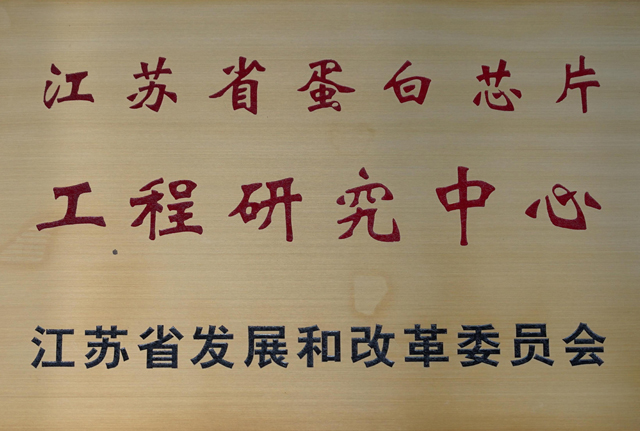 江苏省蛋白芯片
工程研究中心
江苏省发展和改革委员会